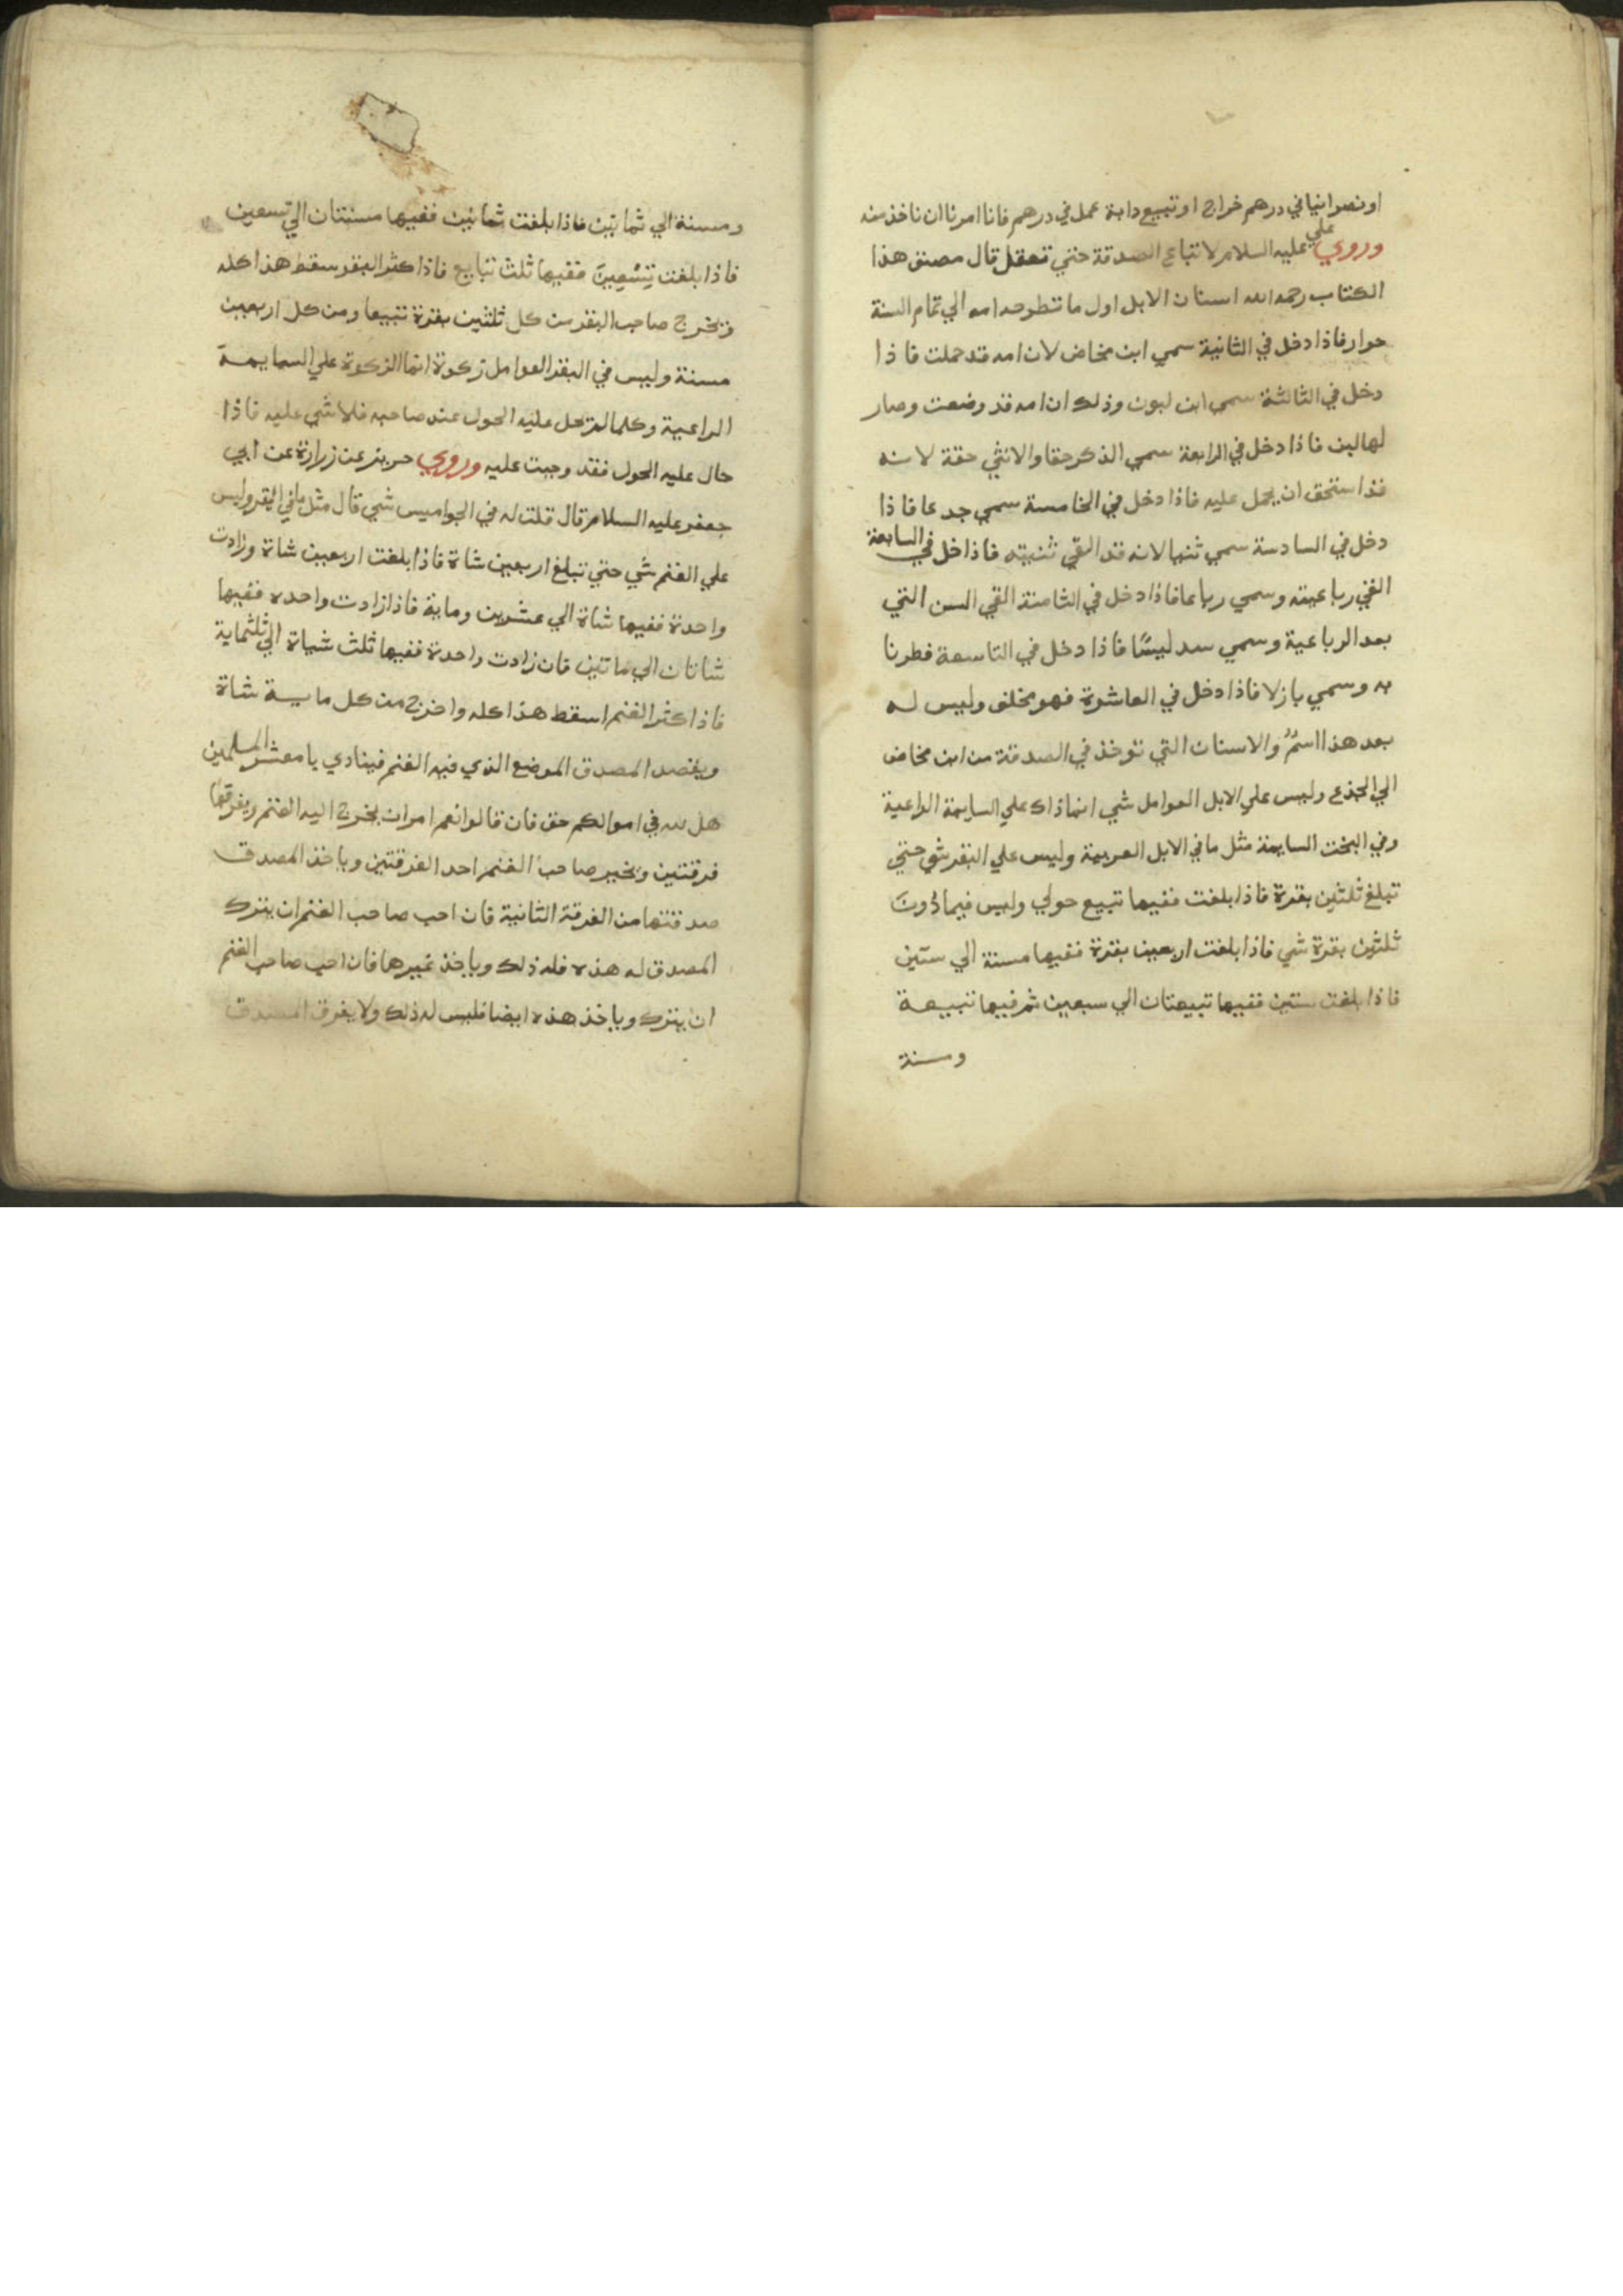 او نصرانيا في درهم خراج او تبيع دابة عمل في درهم فانا امرنا ان ناخذ منه
وروي علي عليه السلام لا تباع الصدقة حتي تعقل قال مصنف هذا
الكتاب رحمه الله اسنان الابل اول ما تطرحه امه الي تمام السنة
حوار فاذا دخل في الثانية سمي ابن مخاض لان امه قد حملت فاذا
دخل في الثالثة سمي ابن لبون وذلك ان امه قد وضعت وصار
لها لبن فاذا دخل في الرابعة سمي الذكر حقا والانثي حقة لانه
قد استحق ان يحمل عليه فاذا دخل في الخامسة سمي جدعا فاذا
دخل في السادسة سمي ثنيا لانه قد القي ثنيته فاذا خل في السابعة
القي رباعيته وسمي رباعا فاذا دخل في الثامنة القي السن التي
بعد الرباعية وسمي سدليسًا فاذا دخل في التاسعة فطرنا
به وسمي بازلا فاذا دخل في العاشوة فهو مخلف وليس له
بعد هذا اسمٌ والاسنان التي توخذ في الصدقة من ابن مخاض
الي الجذع وليس علي الابل العوامل شي انما ذاك علي السايمة الراعية
وفي البخت السايمة مثل ما في الابل العربية وليس علي البقر شي حتي
تبلغ ثلثين بقرة فاذا بلغت ففيها تبيع حولي وليس فيما دُونَ
ثلثين بقرة شي فاذا بلغت اربعين بقرة ففيها مسنة الي ستين
فاذا بلغت ستين ففيها تبيعتان الي سبعين ثم فيها تبيعة
ومسنة
ومسنة الي ثمانين فاذا بلغت ثمانين ففيها مسنتان الي تسعين
فاذا بلغت تِسْعِينَ ففيها ثلث تبايع فاذا كثر البقر سقط هذا كله
ويخرج صاحب البقر من كل ثلثين بقرة تبيعا ومن كل اربعين
مسنة وليس في البقر العوامل زكوة انما الزكوة علي السايمة
الراعية وكلما لم يحل عليه الحول عند صاحبه فلا شي عليه فاذا
حال عليه الحول فقد وجبت عليه وروي حريز عن زرارة عن ابي
جعفر عليه السلام قال قلت له في الجواميس شي قال مثل ما في البقر وليس
علي الغنم شي حتي تبلغ اربعين شاة فاذا بلغت اربعين شاة وزادت
واحدة ففيها شاة الي عشرين وماية فاذا زادت واحده ففيها
شاتان الي ماتين فان زادت واحدة ففيها ثلث شياة الي ثلثماية
فاذا كثر الغنم اسقط هذا كله واخرج من كل ماية شاة
ويقصد المصدق الموضع الذي فيه الغنم فينادي يا معشر المسلمين
هل لله في اموالكم حق فان قالوا نعم امر ان يخرج اليه الغنم ويفرقها
فرقتين ويخير صاحب الغنم احد الفرقتين وياخذ المصدق
صدقتها من الفرقة الثانية فان احب صاحب الغنم ان يترك
المصدق له هذه فله ذلك وياخذ غيرها فان احب صاحب الغنم
ان يترك وياخذ هذه ايضا فليس له ذلك ولا يفرق المصدق